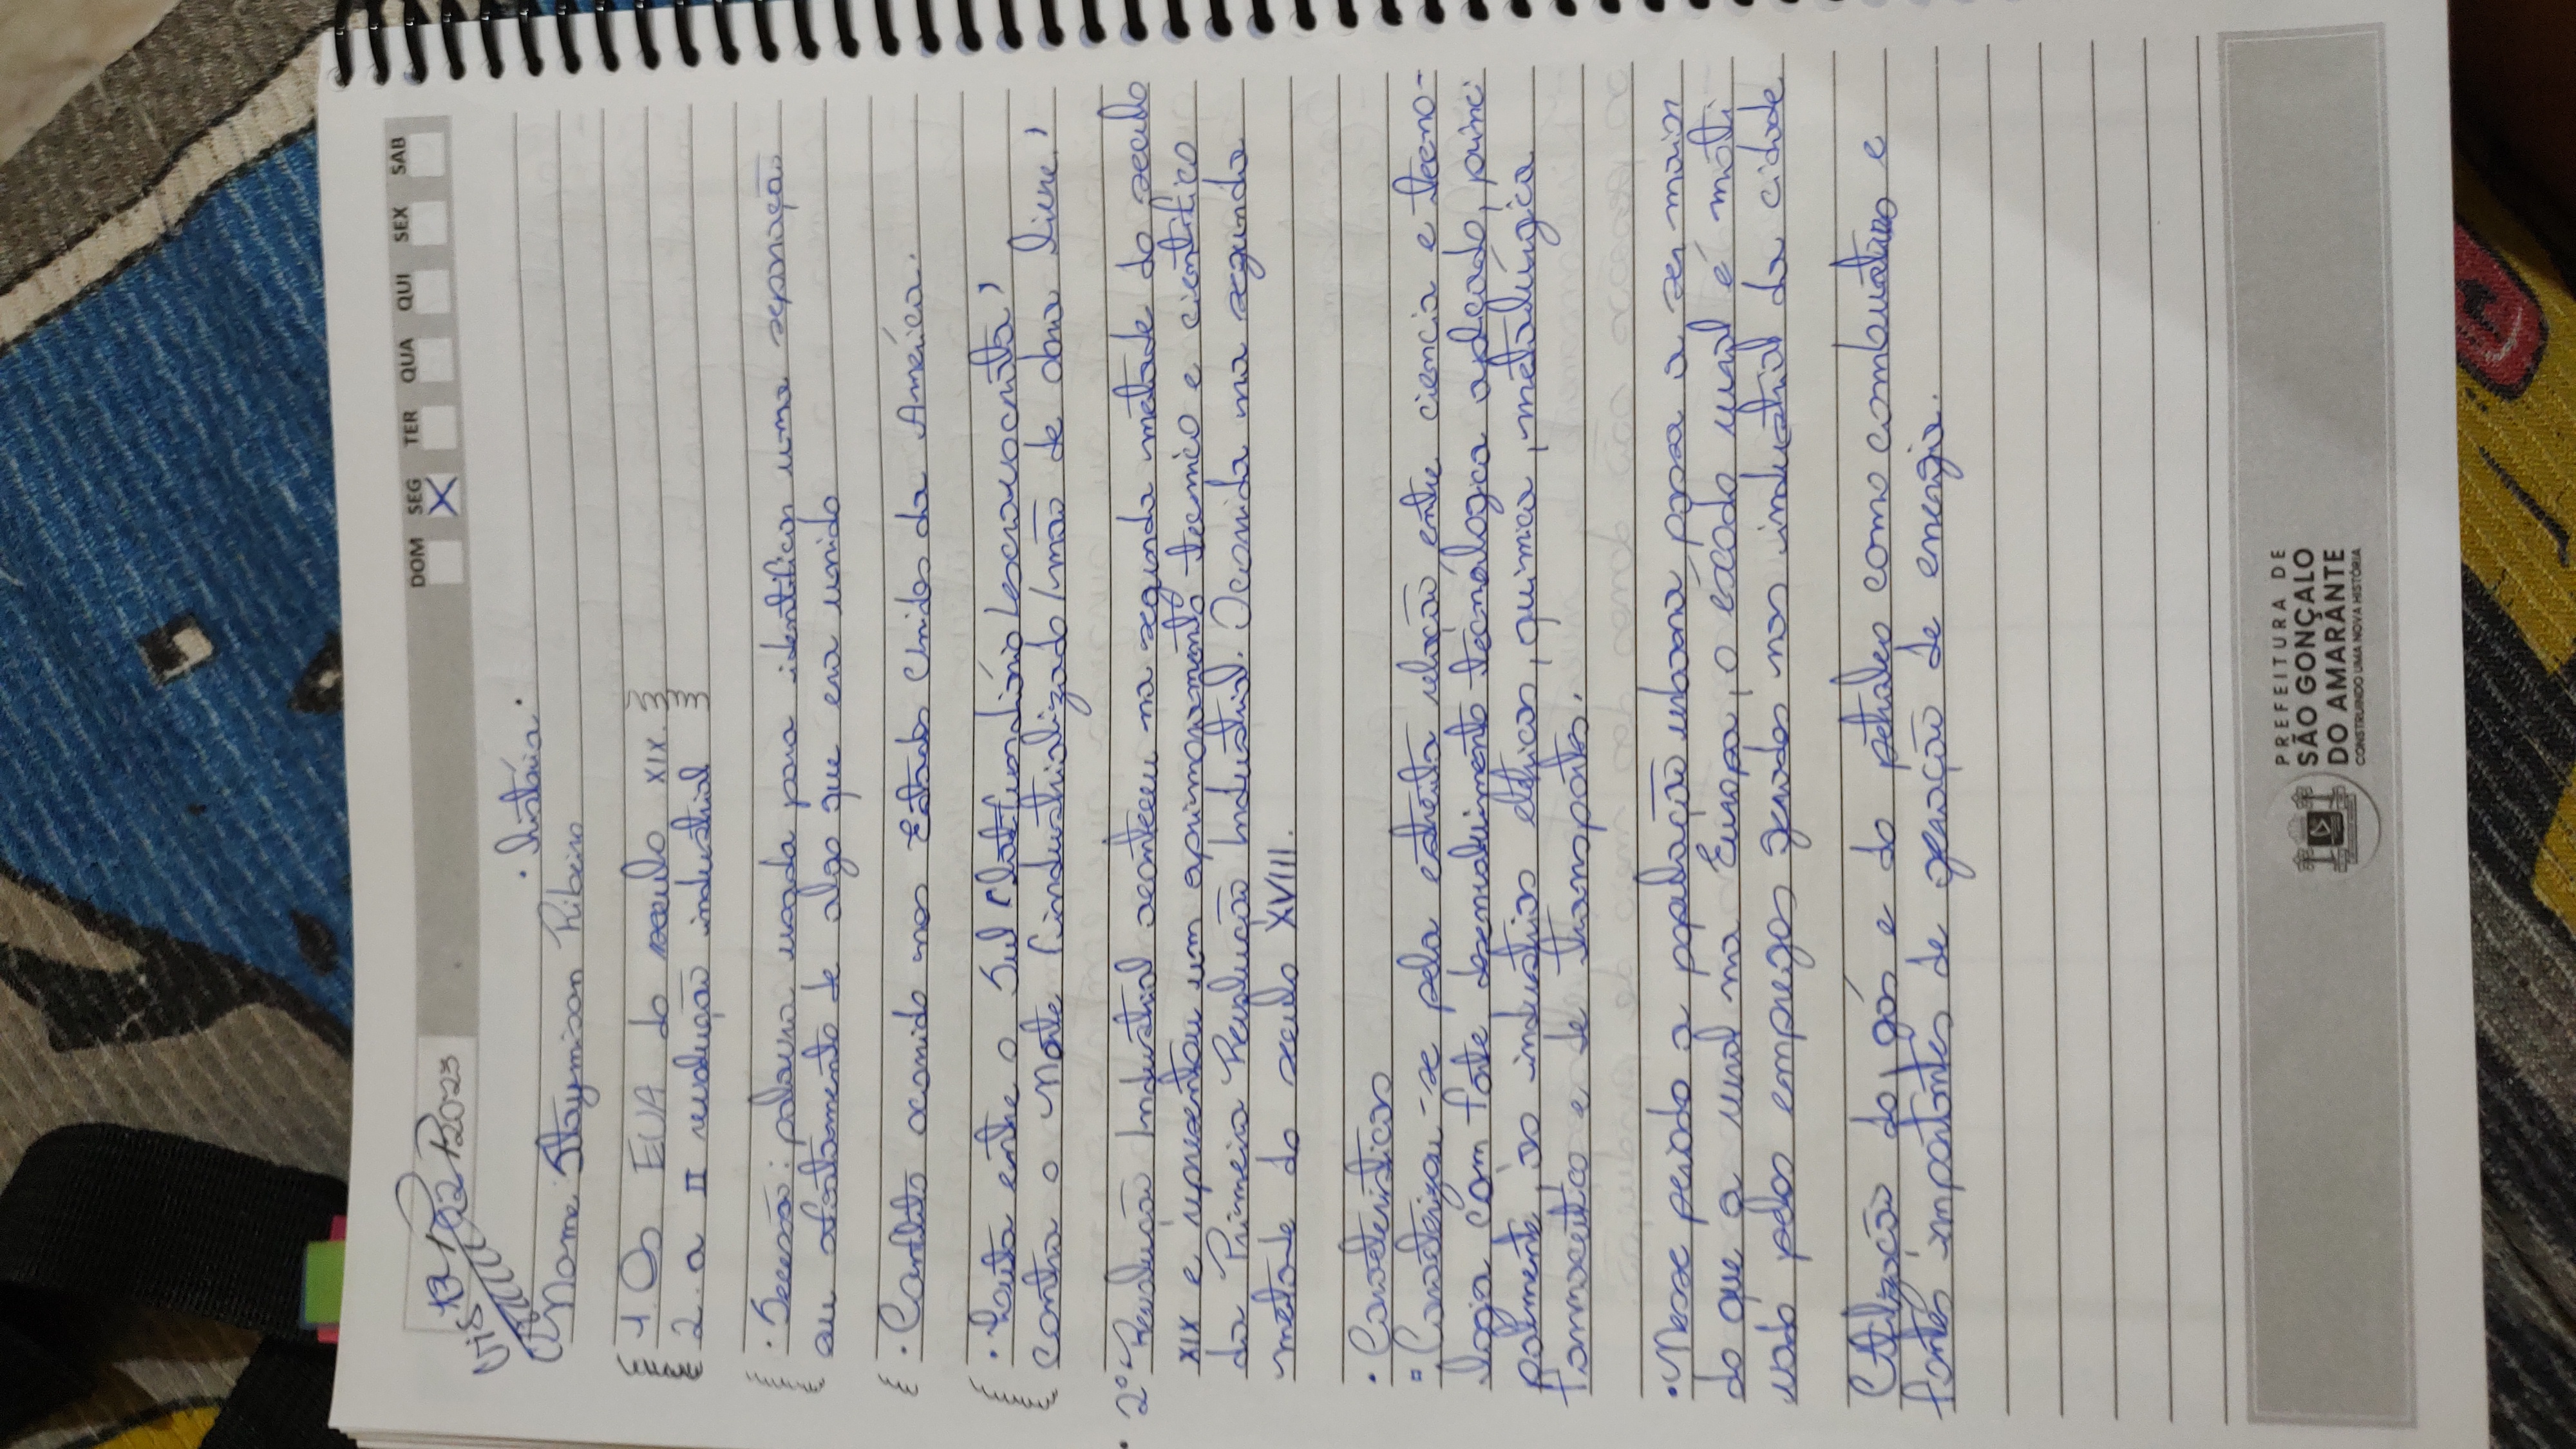 DOM SEG TER QUA QUI SEX SAB
13/02/2023
· história ·
Nome: Staymison Ribeiro
1. Os EUA do seculo XIX.
2. a II revolução industrial
· Secessão: palavra usada para identificar uma separação
ou afastamento de algo que era unido
· Conflito ocorrido nos Estados Unidos da América.
· Luta entre o Sul (latifundiário/escravocrata)
contra o Norte (industrializado/mão de obra livre)
2º Revolução Industrial aconteceu na segunda metade do seculo
XIX e representou um aprimoramento tecnico e cientifico
da Primeira Revolução Industrial. Ocorrida na segunda
metade do seculo XVIII.
· Caracteristicas
Caracterizou-se pela estreita relação entre ciencia e tecno-
logia, com forte desenvolvimento tecnólogica aplicado, princi
palmente, as industrias elétricas, quimica, metalúrgica
farmaceutico e de transportes.
· Nesse periodo a população urbana passa a ser maior
do que a rural na Europa, o éxodo rural é moti
vado pelos empregos gerados nas industrial da cidade
Utilização do gás e do petroleo como combustivo e
fontes importantes de geração de energia.
PREFEITURA DE
SÃO GONÇALO
DO AMARANTE
CONSTRUINDO UMA NOVA HISTÓRIA